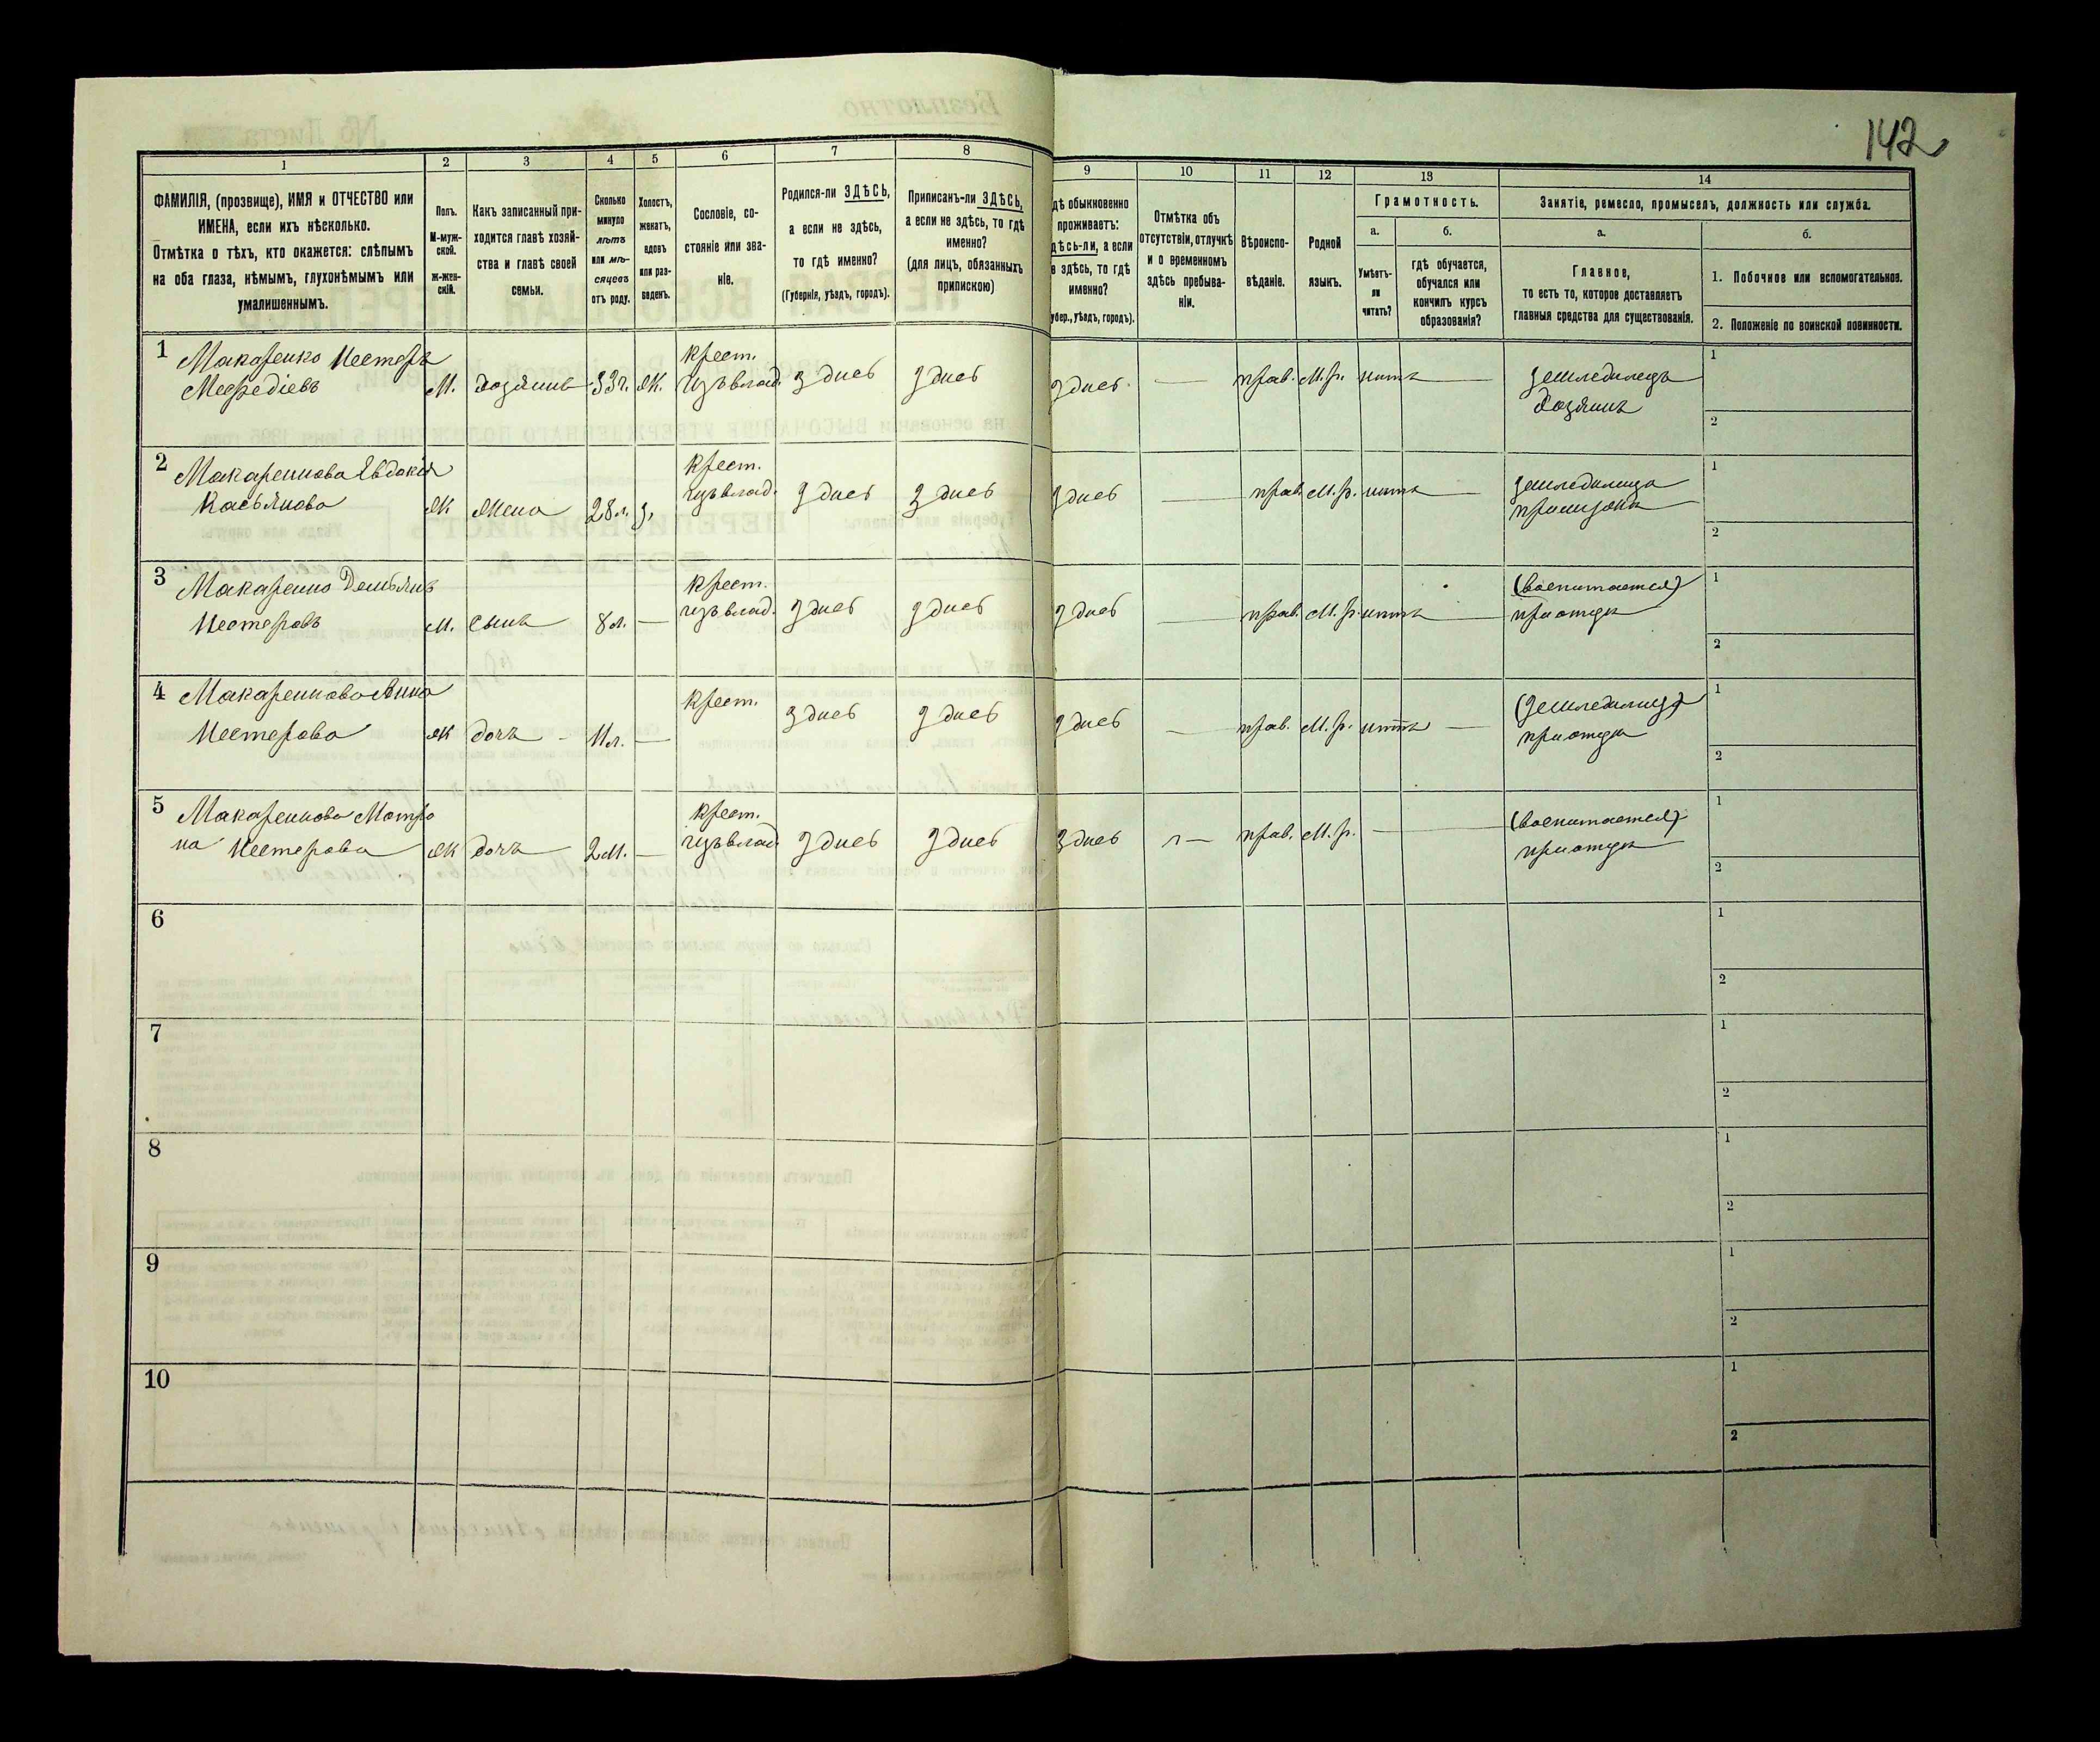 142
1
2
3
4
5
6
7
8
9
10
11
12
13
14
ФАМИЛІЯ, (прозвище), ИМЯ и ОТЧЕСТВО или
ИМЕНА, если ихъ нѣсколько.
Отмѣтка о тѣхъ, кто окажется: слѣпымъ
на оба глаза, нѣмымъ, глухонѣмымъ или
умалишеннымъ.
Полъ.
М-муж-
ской.
Ж-жен-
скій.
Какъ записанный при-
ходится главѣ хозяй-
ства и главѣ своей
семьи.
Сколько
минуло
лѣтъ
или мѣ-
сяцевъ
отъ роду.
Холостъ,
женатъ,
вдовъ
или раз-
веденъ.
Сословіе, со-
стояніе или зва-
ніе.
Родился-ли ЗДѢСЬ,
а если не здѣсь,
то гдѣ именно?
(Губернія, уѣздъ, городъ).
Приписанъ-ли ЗДѢСЬ,
а если не здѣсь, то гдѣ
именно?
(для лицъ, обязанныхъ
припискою)
дѣ обыкновенно
проживаетъ:
дѣсь-ли, а если
е здѣсь, то гдѣ
именно?
убер., уѣздъ, городъ).
Отмѣтка объ
отсутствіи, отлучкѣ
и о временномъ
здѣсь пребыва-
ніи.
Вѣроиспо-
вѣданіе.
Родной
языкъ.
Грамотность.
а.
б.
Умѣетъ-
ли
читать?
гдѣ обучается,
обучался или
кончилъ курсъ
образованія?
Занятіе, ремесло, промыселъ, должность или служба.
а.
б.
Главное,
то есть то, которое доставляетъ
главныя средства для существованія.
1. Побочное или вспомогательное.
2. Положеніе по воинской повинности.
1 Макаренко Нестеръ
Мефедіевъ
М. хозяинъ 33 г. Ж. крест.
изъ влад. здѣсь здѣсь здѣсь — прав. М.р. нѣтъ — земледѣлецъ
хозяинъ
1
2
2 Макаренкова Явдокія
Касьянова
Ж жена 28 л. З. крест.
изъ влад. здѣсь здѣсь здѣсь — прав. М.р. нѣтъ — земледѣлица
при мужѣ
1
2
3 Макаренко Демьянъ
Нестеровъ
М. сынъ 8 л. — крест.
изъ влад. здѣсь здѣсь здѣсь — прав. М.р. нѣтъ — (воспитается)
при отцѣ
1
2
4 Макаренкова Анна
Нестерова
Ж дочь — 11 л. — крест. здѣсь здѣсь здѣсь — прав. М.р. нѣтъ — (земледѣлица)
при отцѣ
1
2
5 Макаренкова Матро
на Нестерова
Ж дочь 2 м. — крест.
изъ влад. здѣсь здѣсь здѣсь — прав. М.р. — — (воспитается)
при отцѣ
1
2
6
1
2
7
1
2
8
1
2
9
1
2
10
1
2